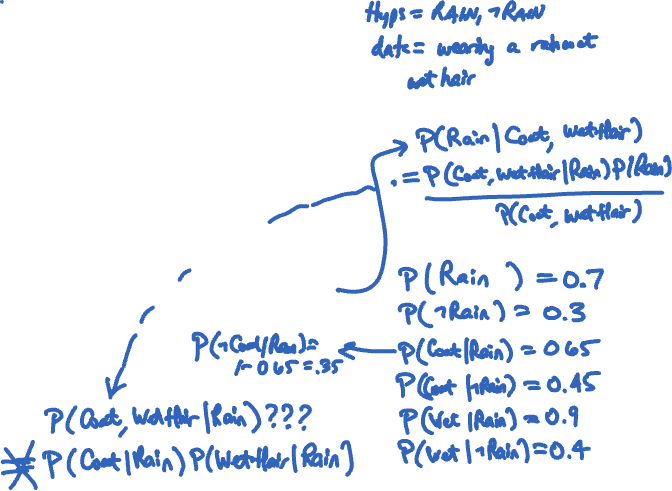 Hyps = RAIN, ¬RAIN
data = wearing a raincoat
wet hair
P(Rain | Coat, Wethair)
= P(Coat, Wethair | Rain) P(Rain)
P(Coat, Wethair)
P(Rain ) = 0.7
P(¬Rain) = 0.3
P(¬Coat|Rain) =
1 - 0.65 = .35
P(Coat | Rain) = 0.65
P(Coat | ¬Rain) = 0.45
P(Wet | Rain) = 0.9
P(wet | ¬Rain) = 0.4
P(Coat, Wethair | Rain) ???
P(Coat | Rain) P(Wethair | Rain)